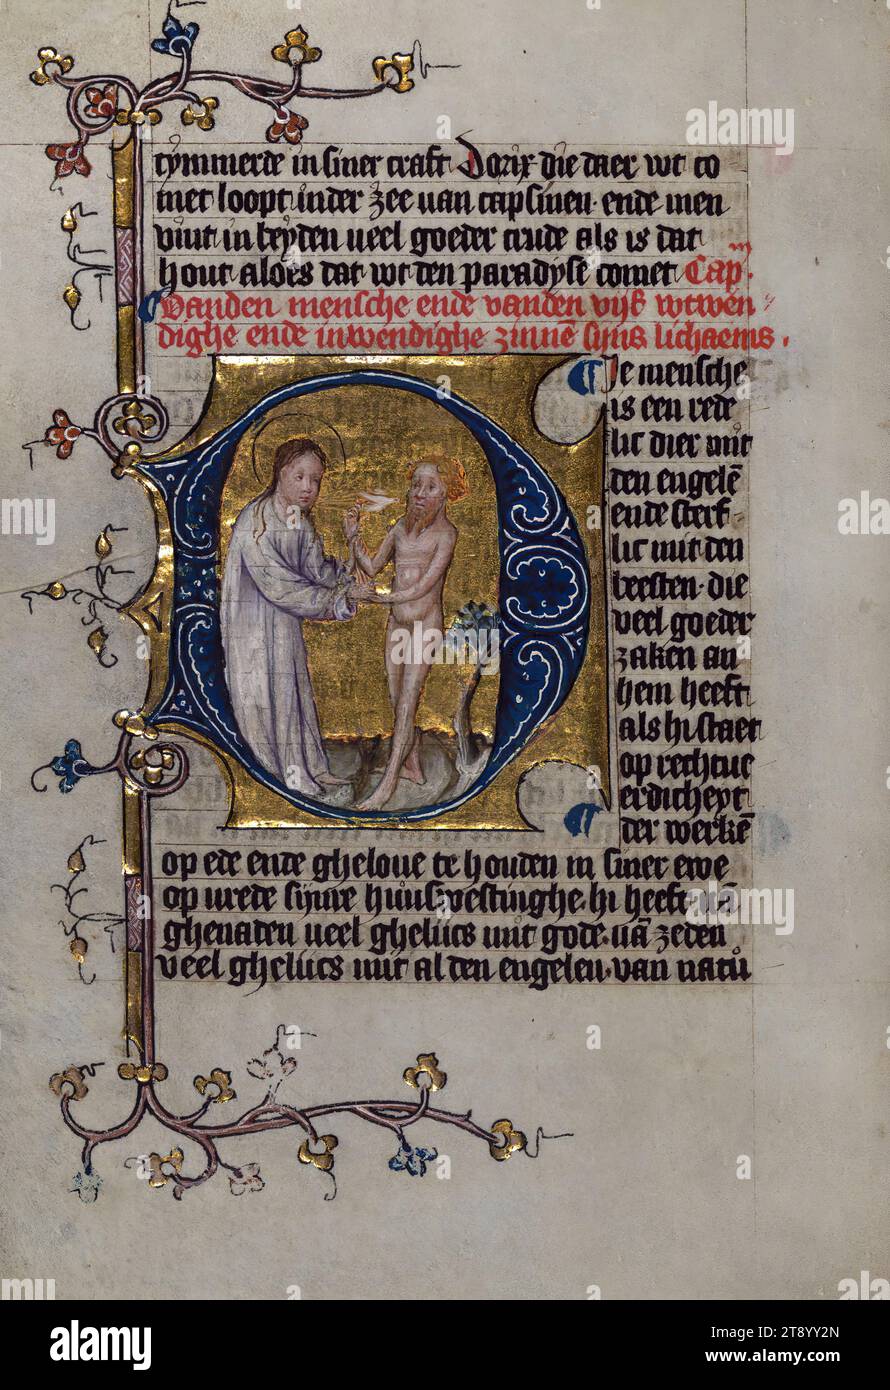 tymmerde in siner craft Dorix die daer wt co
met loopt in der zee van capsinen· ende men
vint in beyden veel goeder crude als is dat
hout aloes dat wt den paradyse comet Cap. iii
Vanden mensche ende vanden vijf wtwen
dighe ende inwendighe zinnē sijns lichaems.
De mensche
is een rede
lic dier mit
den engelē
ende sterf
lic mit den
beesten· die
veel goeder
zaken an
hem heeft
als hi staet
op rechtue
erdicheyt
der werkē
op ede ende gheloue te houden in siner ewe
op vrede sijnre huuswestinghe· hi heeft vā
ghenaden veel ghelucs mit gode· vā zeden
veel ghelucs mit al den engelen· van natu
alamy
Image ID: 2T8YY2N
www.alamy.com